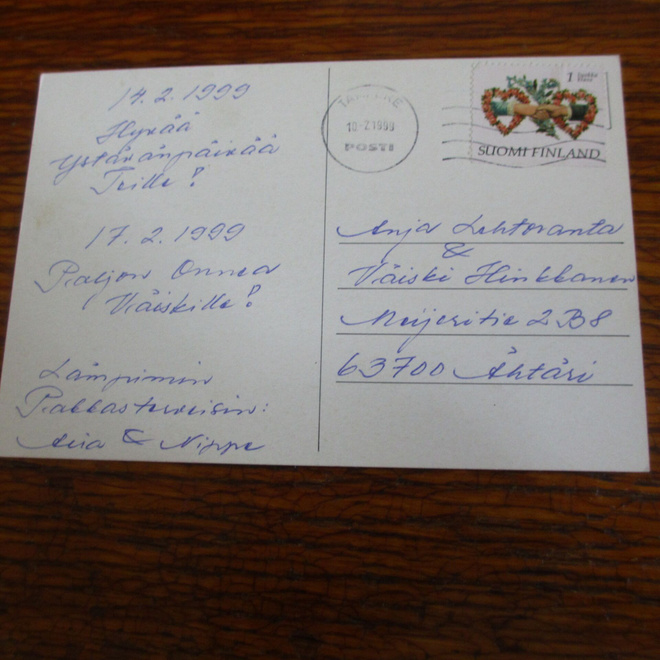 14.2.1999
Hyvää
Ystävänpäivää
Teille!
17.2.1999
Paljon Onnea
Väiskille!
Lämpimin
Pakkasterveisin:
& Nippe
TAMPERE
10.2.1999
POSTI
1
SUOMI FINLAND
Anja Lehtoranta
&
Väiski Hinkkanen
Meijeritie 2 B 8
63700 Ähtäri